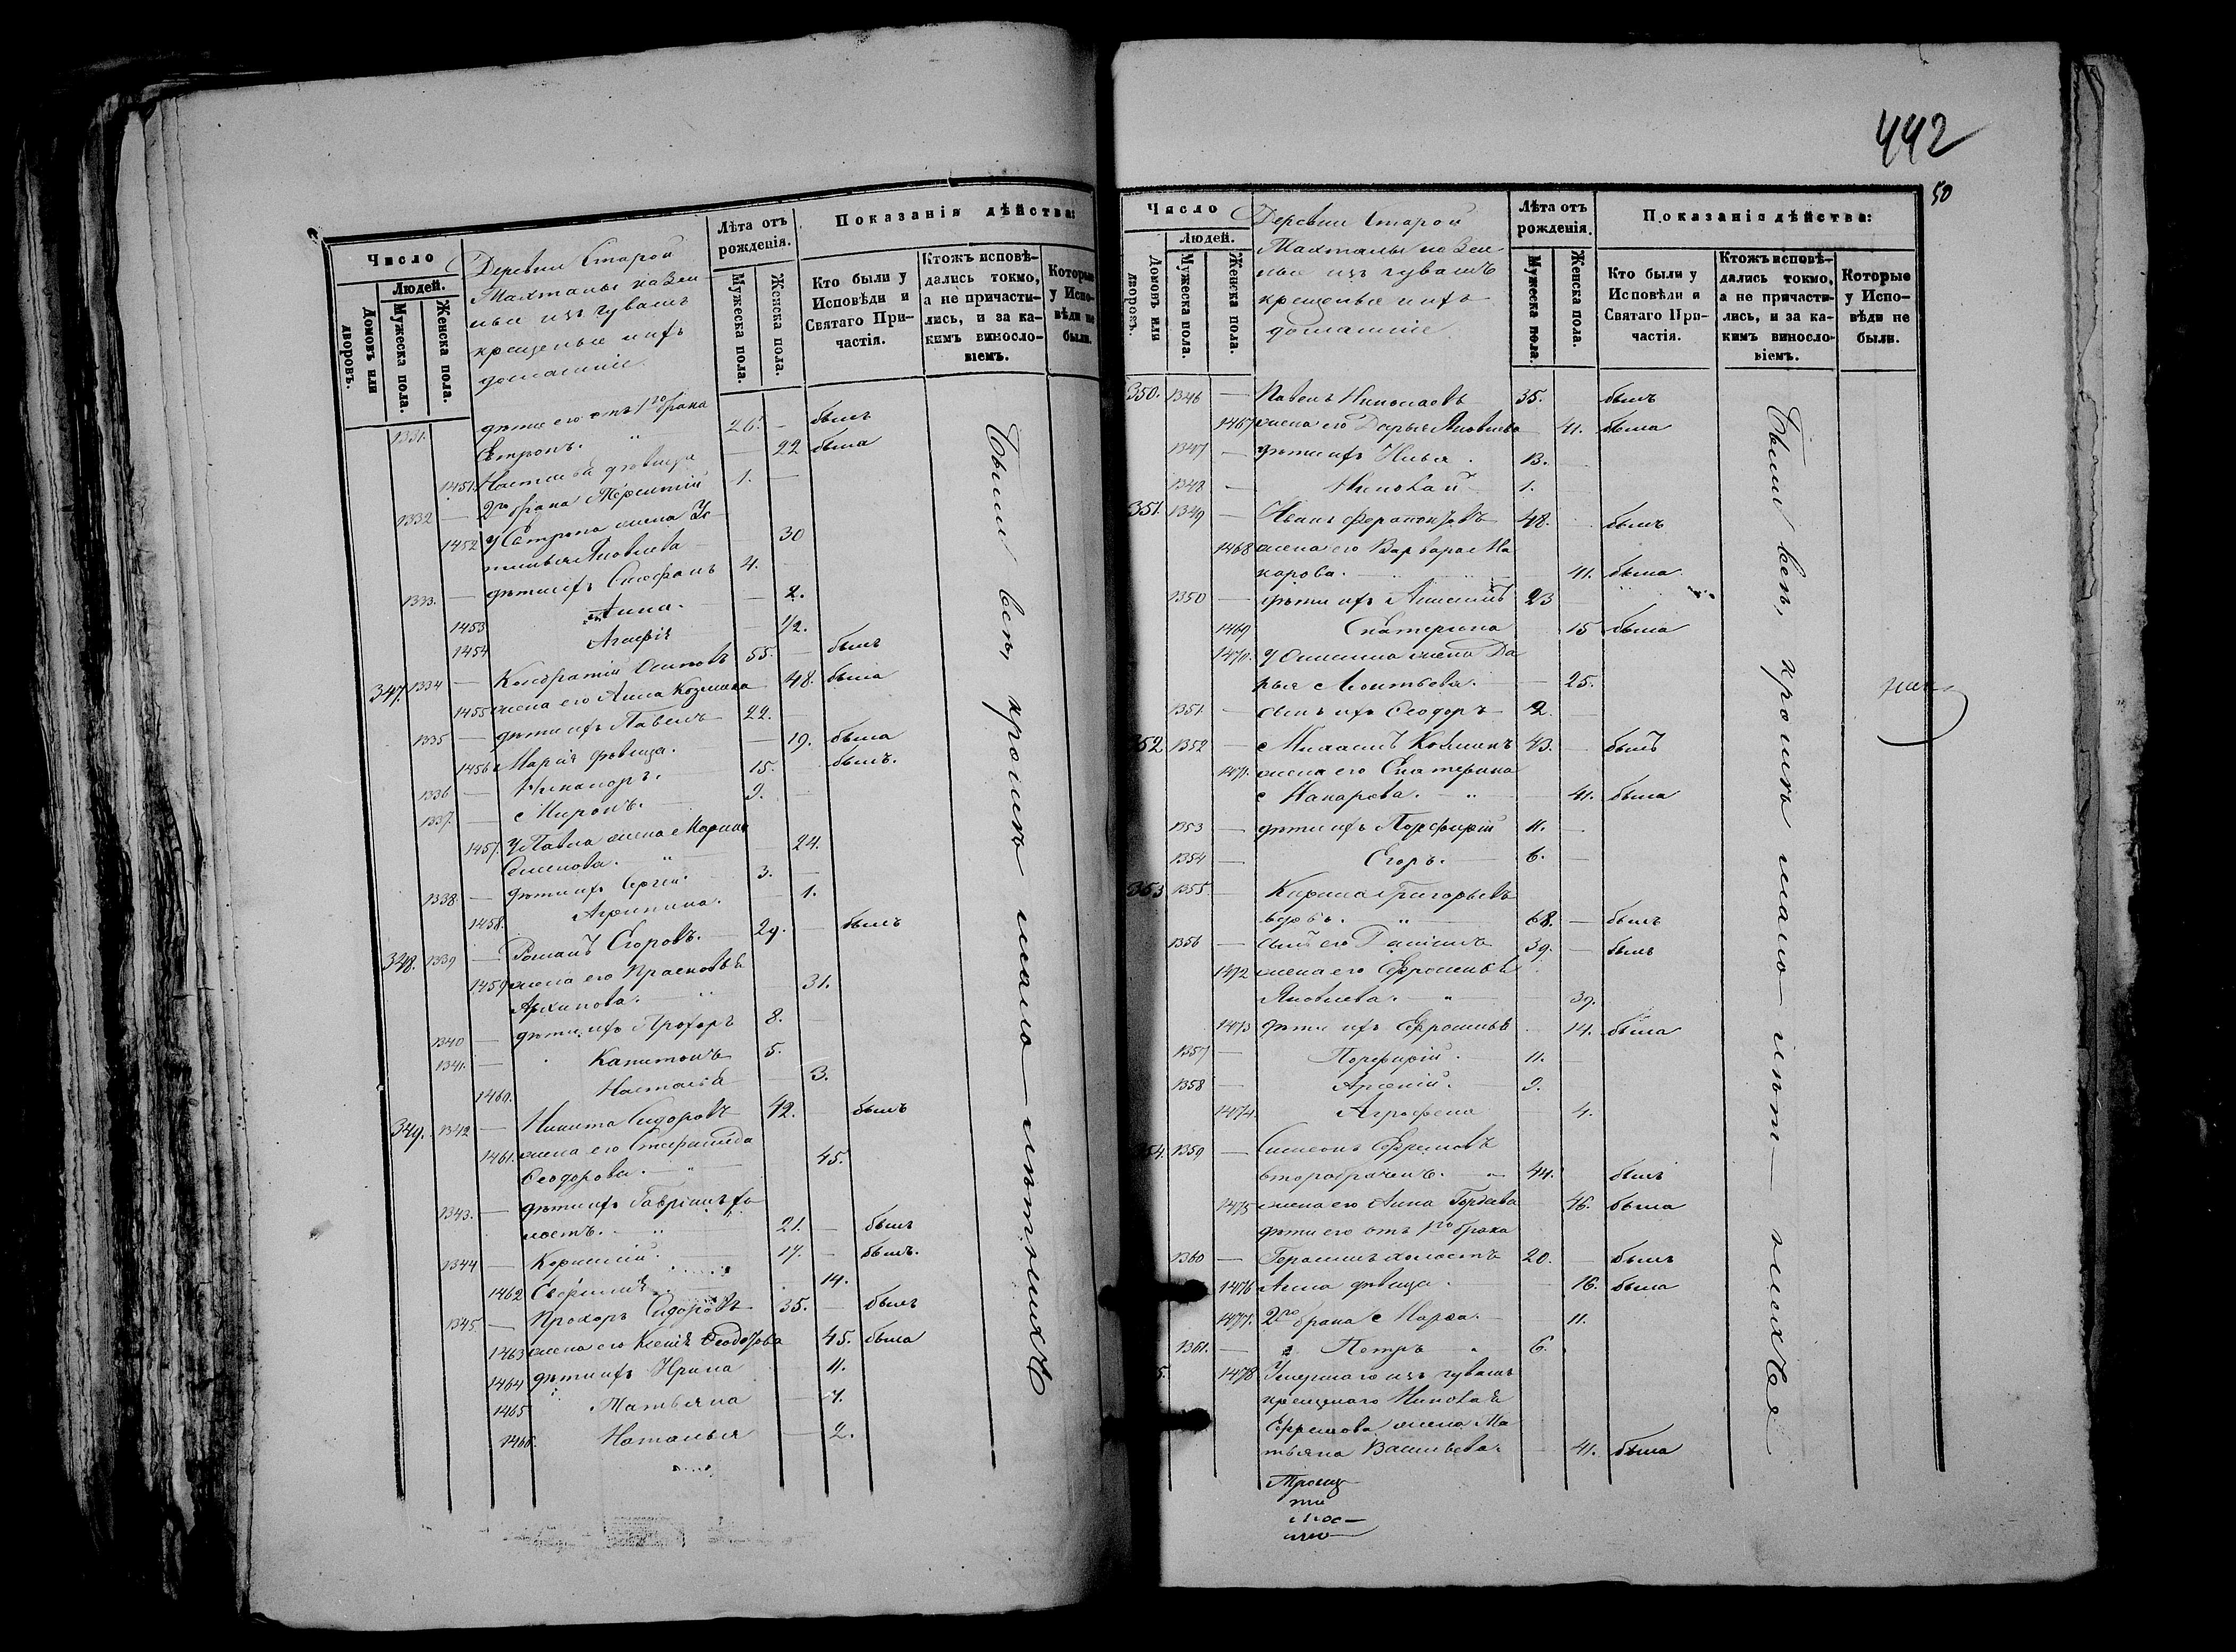 Число
Людей.
Домовъ или дворовъ.
Мужеска пола.
Женска пола.
Деревни Старой
Махталы казен
ные изъ чувашъ
крещеные и ихъ
домашніе
Лѣта отъ рожденія.
Мужеска пола.
Женска пола.
Показанія дѣйства:
Кто были у Исповѣди и Святаго Причастія.
Ктожъ исповѣдались токмо, а не причастились, и за какимъ винословіемъ.
Которые у Исповѣди не были.
1331. дѣти его отъ 1го брака
26. — былъ
1451. Настасья дѣвица — 22 была
1332 — 2го брака 1. —
1452 жена
Яковлева — 30
1333. — дѣти ихъ Стефанъ 4. —
1453 Анна. — 2.
1454 Агафія — 1/2.
347. 1334 — Кондратій Осиповъ 55. — былъ
1455 жена его Анна Козмина 48. была
1335 — дѣти ихъ Павелъ 22. —
1456 Марія дѣвица. — 19. была
1336 — Никаноръ. 15. былъ.
1337. — Миронъ. 9. —
1457. У Павла жена Марина
Семенова. " — 24.
1338. — дѣти ихъ Сергій. 3. —
1458. Агрипина. — 1.
348. 1339 — Романъ Егоровъ. — 29. — былъ
1459 жена его Прасковья
Архипова. — " — 31.
1340 — дѣти ихъ Прохоръ 8. —
1341. — Капитонъ 5.
1460. Настасья — 3.
349. 1342 — Никита Сидоровъ 42. — былъ
1461. жена его Стефанида
Ѳеодорова. — " — 45.
1343. — дѣти ихъ Гавріилъ хо
лостъ. — " 21. — былъ
1344 — Корнилій. 17. — былъ.
1462 14.
1345. — Прохоръ Сидоровъ 35. — былъ
1463 жена его Ксенія Ѳеодорова 45. была
1464 дѣти ихъ Ирина 11.
1465 Татьяна — 7.
1466. Наталья — 2.
Были всѣ, кромѣ мало-лѣтнихъ
442
50
Число
Людей.
Домовъ или дворовъ.
Мужеска пола.
Женска пола.
Деревни Старой
Махталы казен
ные изъ чувашъ
крещеные и ихъ
домашніе
Лѣта отъ рожденія.
Мужеска пола.
Женска пола.
Показанія дѣйства:
Кто были у Исповѣди и Святаго Причастія.
Ктожъ исповѣдались токмо, а не причастились, и за какимъ винословіемъ.
Которые у Исповѣди не были.
350. 1346 — Павелъ Николаевъ 35. былъ
1467 жена его Дарья Яковлева 41. была
1347 — дѣти ихъ Илья. 13. —
1348 — Николай 1.
351. 1349 — Иванъ 48. былъ
1468 жена его Варвара Ма
карова. — " 41. была
1350 — дѣти ихъ 23
1469 Екатерина 15 была
1470. жена Да
рья Леонтьева. — 25.
1351. — сынъ ихъ Ѳеодоръ 2.
352 1352 — 43. — былъ
1471. жена его Екатерина
Макарова. — " 41. была
1353 — дѣти ихъ Порфирій 11. —
1354 — Егоръ. — 6. —
353 1355 — Кирила Григорьевъ
вдовъ. — " — 68. — былъ
1356 — сынъ его Даніилъ 39. — былъ
1472 жена его Ефросинья
Яковлева. — " — 39.
1473 дѣти ихъ Ефросинья 14. была
1357 — Порфирій. 11. —
1358 — Арсеній. — 9.
1474. Агрофена 4.
354. 1359 — Симеонъ Ефремовъ
второбраченъ. — " 44. былъ
1475 жена его Анна Гордеева 46. была
дѣти его отъ 1го брака
1360 — Герасимъ холостъ 20. — былъ
1476 Анна дѣвица. 16. была
1477. 2го брака Марѳа. — 11.
1361. — Петръ " 6.
1478 Умершаго изъ чувашъ
крещенаго Николая
Ефремова жена Та
тьяна Васильева — 41. была
Были всѣ, кромѣ мало-лѣт-нихъ